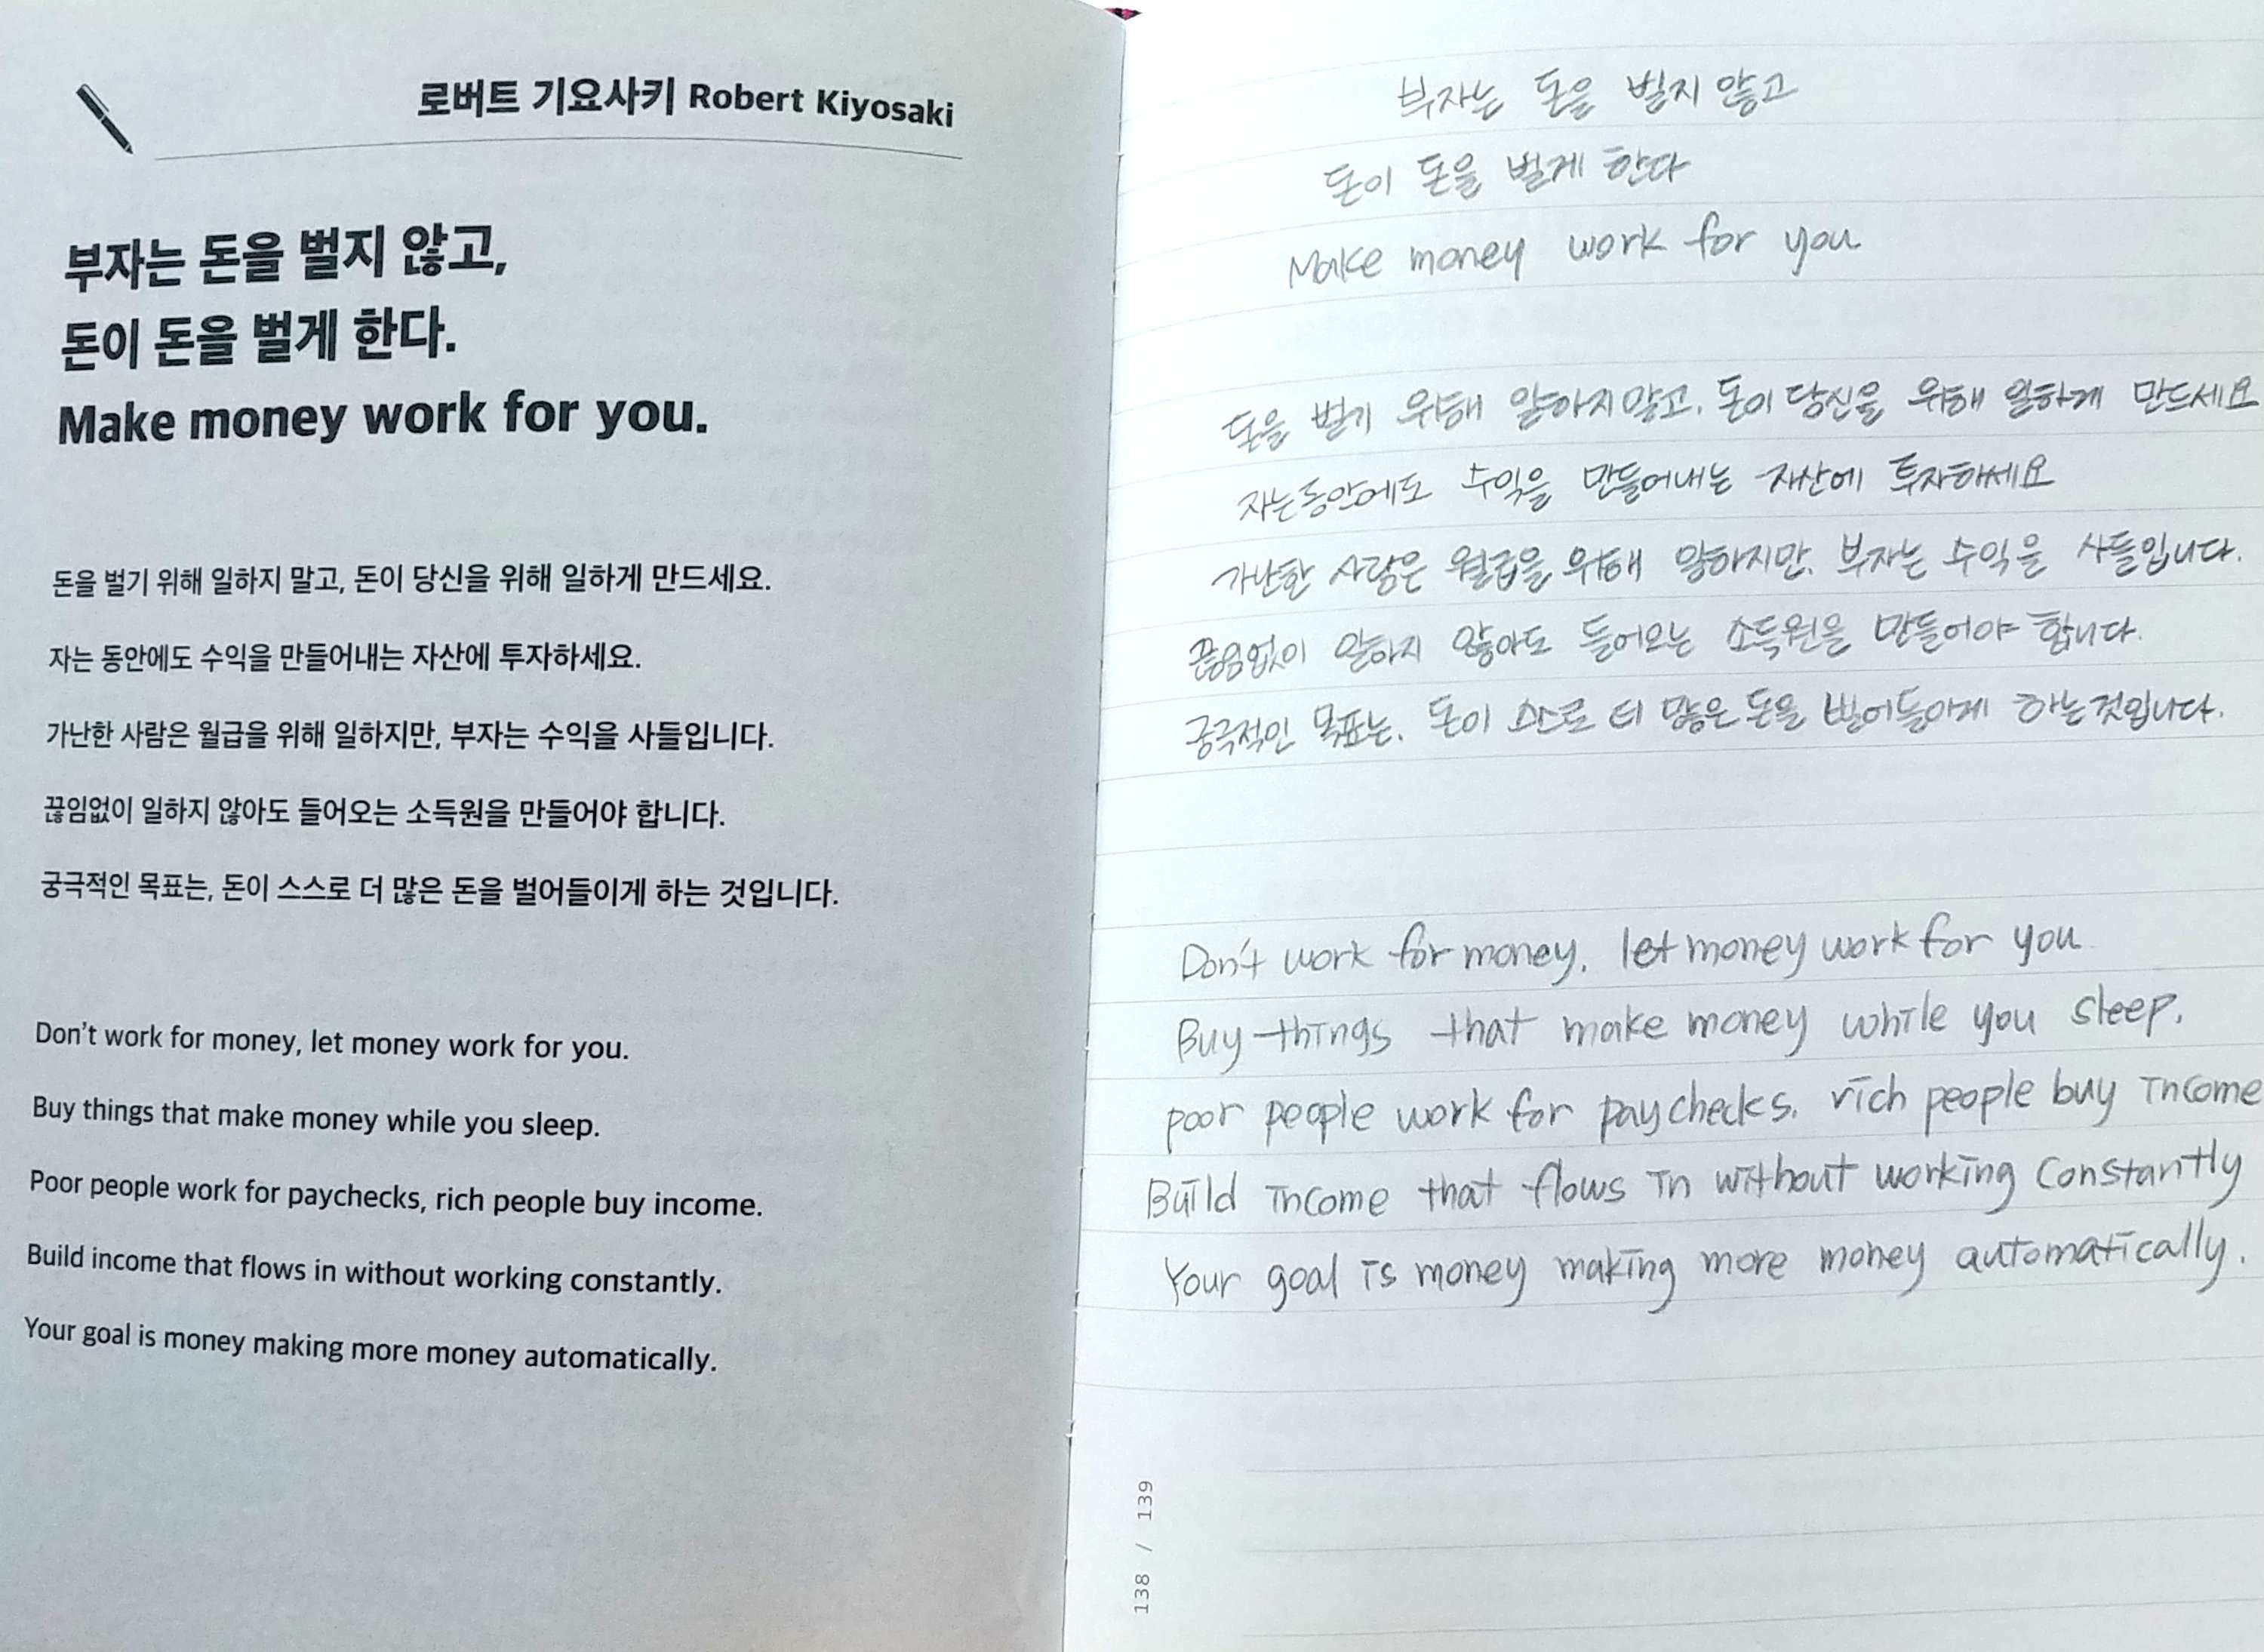 로버트 기요사키 Robert Kiyosaki
부자는 돈을 벌지 않고,
돈이 돈을 벌게 한다.
Make money work for you.
돈을 벌기 위해 일하지 말고, 돈이 당신을 위해 일하게 만드세요.
자는 동안에도 수익을 만들어내는 자산에 투자하세요.
가난한 사람은 월급을 위해 일하지만, 부자는 수익을 사들입니다.
끊임없이 일하지 않아도 들어오는 소득원을 만들어야 합니다.
궁극적인 목표는, 돈이 스스로 더 많은 돈을 벌어들이게 하는 것입니다.
Don't work for money, let money work for you.
Buy things that make money while you sleep.
Poor people work for paychecks, rich people buy income.
Build income that flows in without working constantly.
Your goal is money making more money automatically.
부자는 돈을 벌지 않고
돈이 돈을 벌게 한다
Make money work for you
돈을 벌기 위해 일하지말고, 돈이 당신을 위해 일하게 만드세요
자는동안에도 수익을 만들어내는 자산에 투자하세요
가난한 사람은 월급을 위해 일하지만, 부자는 수익을 사들입니다.
끊임없이 일하지 않아도 들어오는 소득원을 만들어야 합니다.
궁극적인 목표는, 돈이 스스로 더 많은 돈을 벌어들이게 하는것입니다.
Don't work for money, let money work for you
Buy things that make money while you sleep.
poor people work for paychecks, rich people buy income
Build income that flows in without working constantly
Your goal is money making more money automatically.
138 / 139